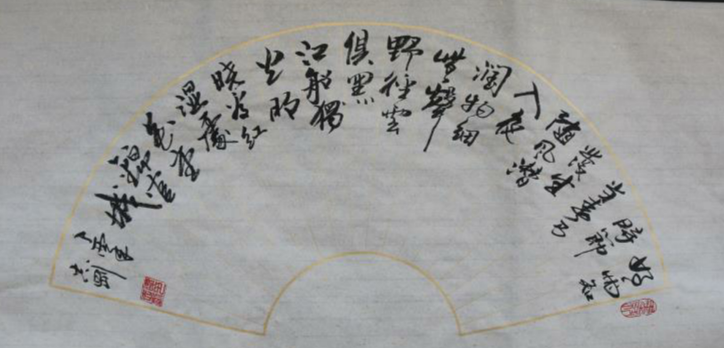 好雨知
時節
当春乃
發生
隨風潛
入夜
潤物細
無聲
野徑雲
俱黑
江船獨
火明
晓看红
濕處
花重
錦官
城